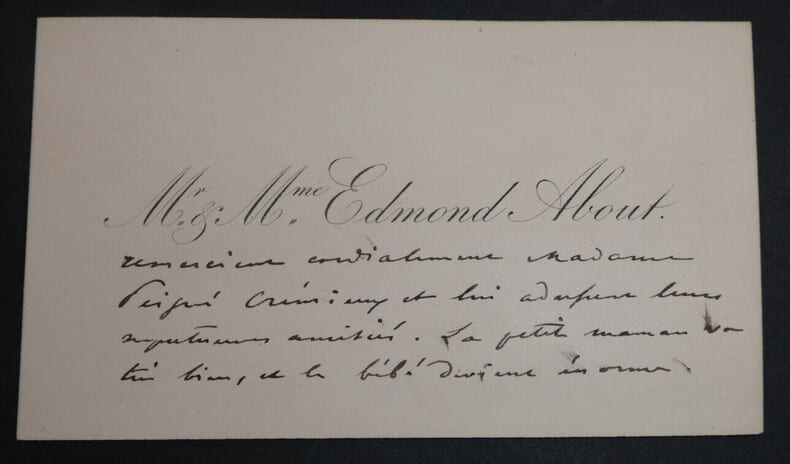 Mr. & Mme. Edmond About.
remercient cordialement Madame
Peigné Crémieux et lui adressent leurs
respectueuses amitiés. La petite maman va
très bien, et le bébé devient énorme